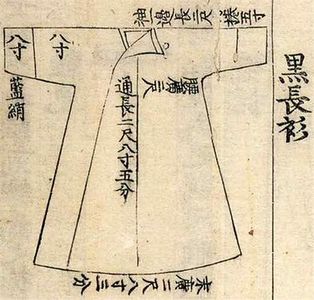 黑長衫
袖邊長二尺
捲五寸
腰廣二尺
通長二尺八寸五分
八寸
八寸
藍絹
末廣二尺八寸三分